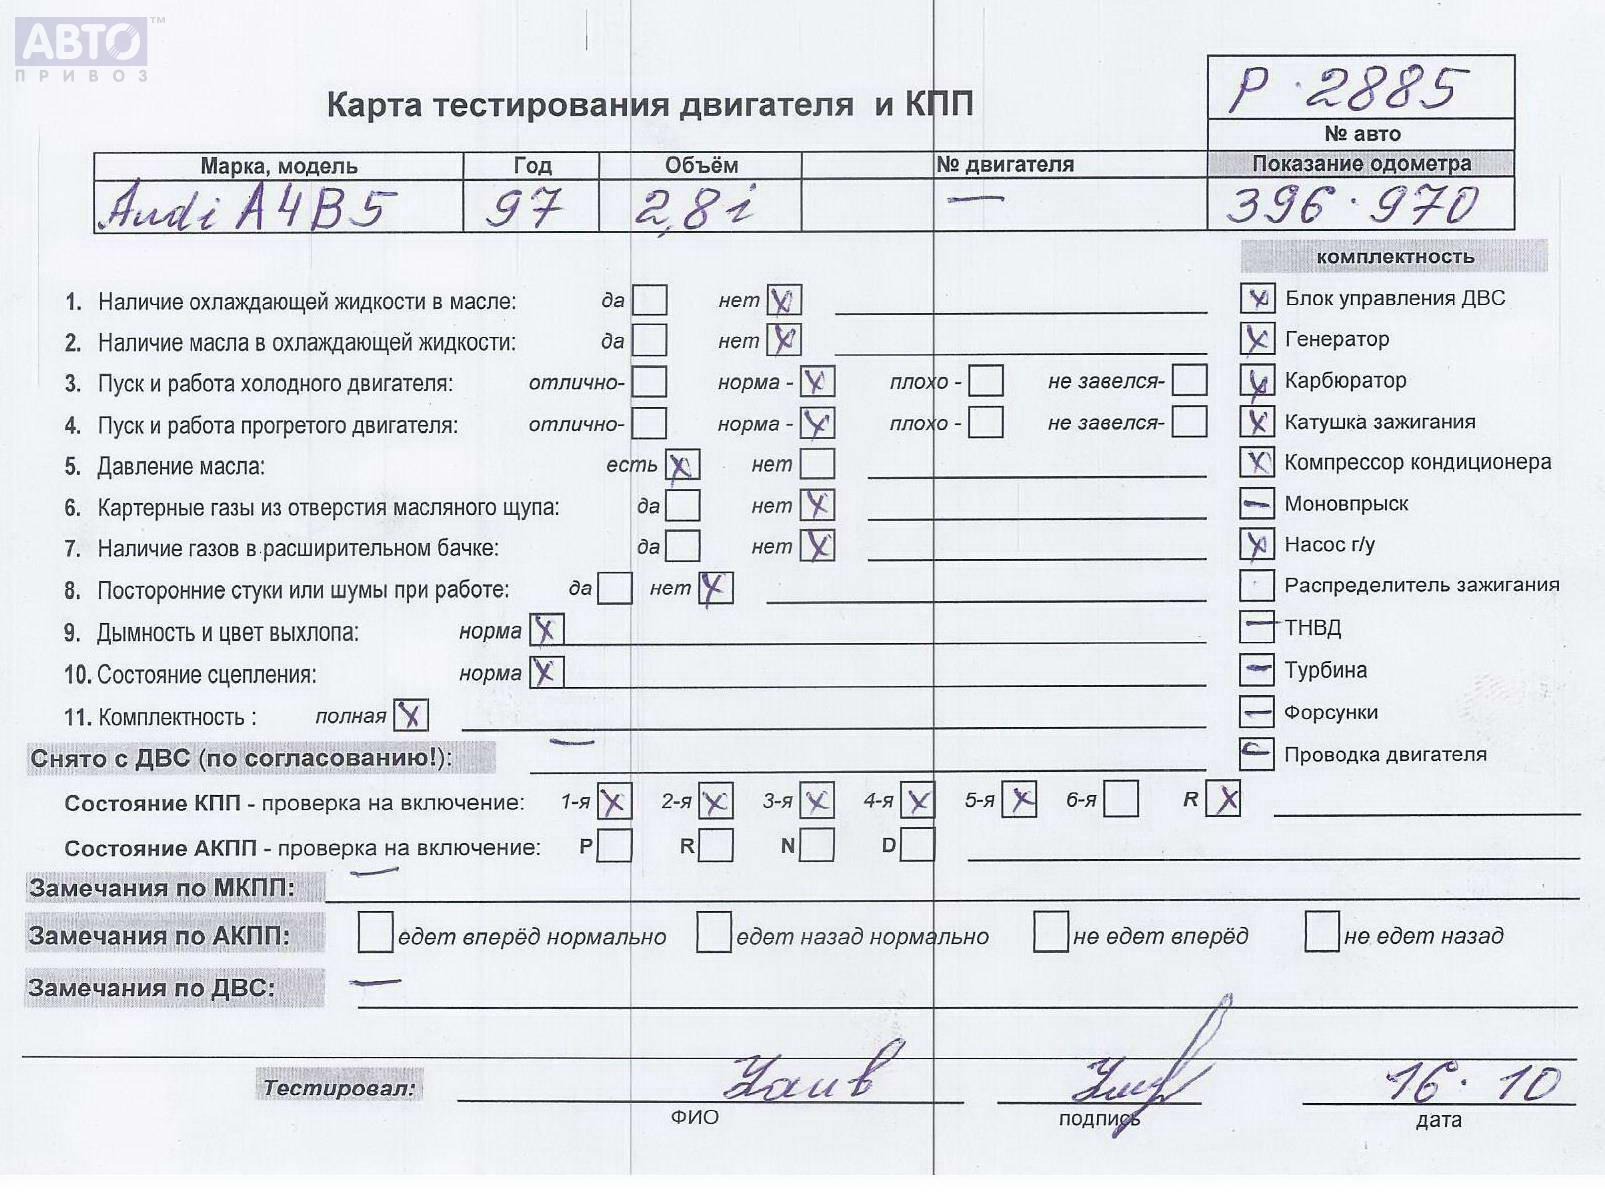 АВТО™
ПРИВОЗ
Р · 2885
Карта тестирования двигателя и КПП
№ авто
Марка, модель Год Объём № двигателя Показание одометра
Audi A4B5 97 2,8i — 396 · 970
комплектность
1. Наличие охлаждающей жидкости в масле: да нет X
X Блок управления ДВС
2. Наличие масла в охлаждающей жидкости: да нет X
X Генератор
3. Пуск и работа холодного двигателя: отлично- норма - X плохо - не завелся-
X Карбюратор
4. Пуск и работа прогретого двигателя: отлично- норма - X плохо - не завелся-
X Катушка зажигания
5. Давление масла: есть X нет
X Компрессор кондиционера
6. Картерные газы из отверстия масляного щупа: да нет X
— Моновпрыск
7. Наличие газов в расширительном бачке: да нет X
X Насос г/у
8. Посторонние стуки или шумы при работе: да нет X
Распределитель зажигания
9. Дымность и цвет выхлопа: норма X
— ТНВД
10. Состояние сцепления: норма X
— Турбина
11. Комплектность : полная X
— Форсунки
Снято с ДВС (по согласованию!): —
Проводка двигателя
Состояние КПП - проверка на включение: 1-я X 2-я X 3-я X 4-я X 5-я X 6-я R X
Состояние АКПП - проверка на включение: P R N D
Замечания по МКПП: —
Замечания по АКПП: едет вперёд нормально едет назад нормально не едет вперёд не едет назад
Замечания по ДВС: —
Тестировал: 16 · 10
ФИО подпись дата